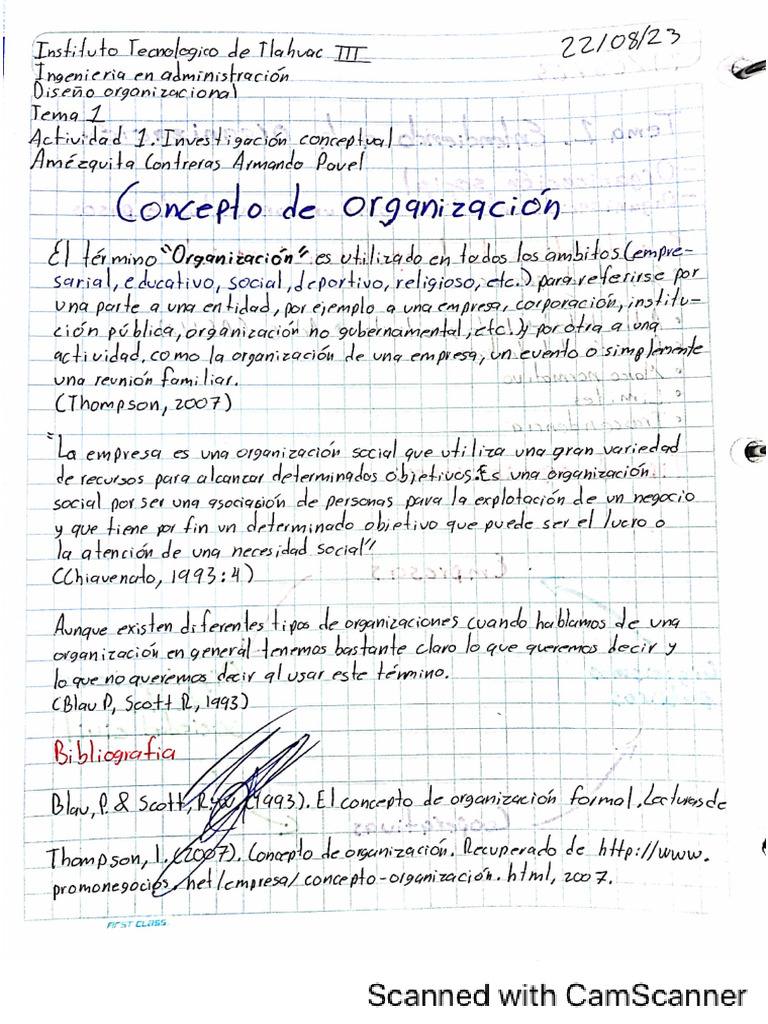 22/08/23
Instituto Tecnologico de Tlahuac III
Ingenieria en administración
Diseño organizacional
Tema 1
Actividad 1. Investigación conceptual
Amézquita Contreras Armando Pavel
Concepto de organización
El término "Organización" es utilizado en todos los ámbitos (empre-
sarial, educativo, social, deportivo, religioso, etc.) para referirse por
una parte a una entidad, por ejemplo a una empresa, corporación, institu-
ción pública, organización no gubernamental, etc. y por otra a una
actividad, como la organización de una empresa, un evento o simplemente
una reunión familiar.
(Thompson, 2007)
"La empresa es una organización social que utiliza una gran variedad
de recursos para alcanzar determinados objetivos. Es una organización
social por ser una asociasión de personas para la explotación de un negocio
y que tiene por fin un determinado objetivo que puede ser el lucro o
la atención de una necesidad social"
(Chiavenato, 1993:4)
Aunque existen diferentes tipos de organizaciones cuando hablamos de una
organización en generál tenemos bastante claro lo que queremos decir y
lo que no queremos decir al usar este término.
(Blau P, Scott R, 1993)
Bibliografia
Blau, P. & Scott, R. (1993). El concepto de organización formal. Lecturas de
Thompson, I. (2007). Concepto de organización. Recuperado de http://www.
promonegocios.net/empresa/concepto-organización.html, 2007.
FIRST CLASS
Scanned with CamScanner